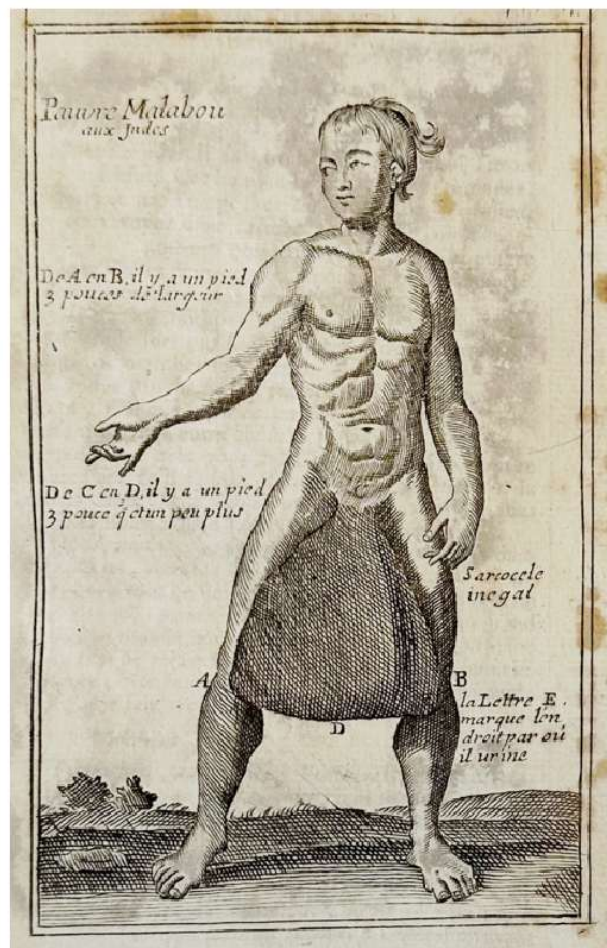 Pauvre Malabou
aux Indes
De A en B, il y a un pied
3 pouces de largeur
De C en D, il y a un pied
3 pouce q̃ et un peu plus
Sarcocele
inegal
C
A
B
la Lettre E.
marque l'en
droit par où
il urine
D